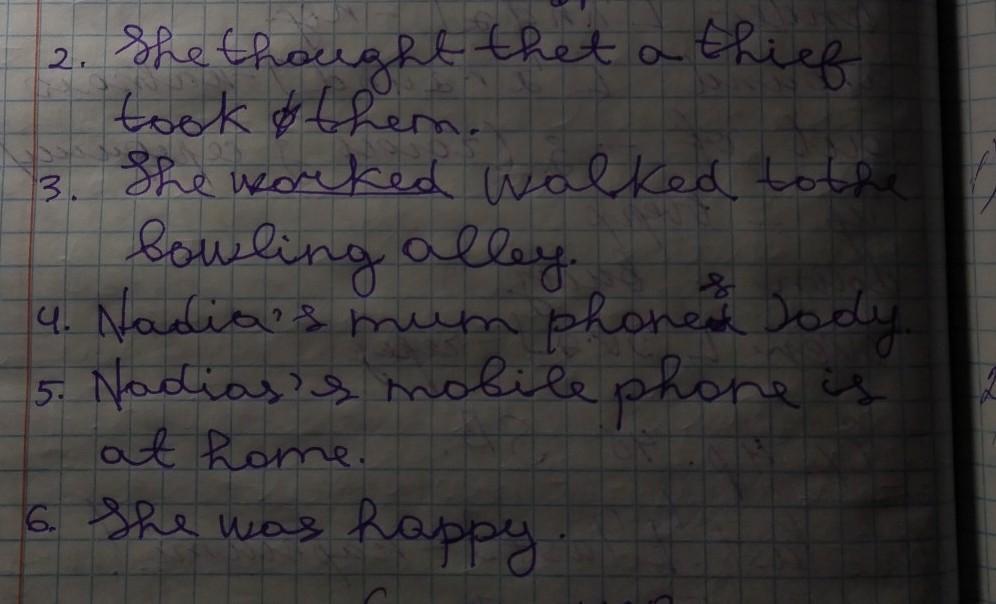 2. She thought thet a thief
took them.
3. She worked walked to the
bowling alley.
4. Nadia's mum phones Jody.
5. Nadias's mobile phone is
at home.
6. She was happy.